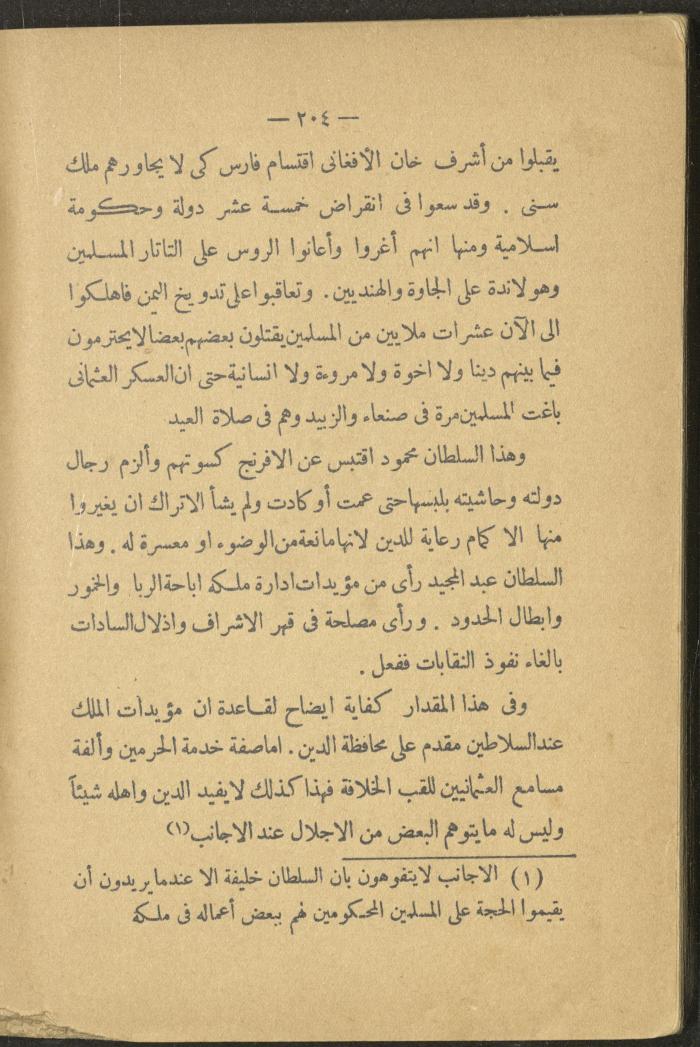 — ٢٠٤ —
يقبلوا من أشرف خان الأفغانى اقتسام فارس كى لا يجاورهم ملك
سنى . وقد سعوا فى انقراض خمسة عشر دولة وحكومة
اسلامية ومنها انهم أغروا وأعانوا الروس على التاتار المسلمين
وهولاندة على الجاوة والهنديين . وتعاقبوا على تدويخ اليمن فاهلكوا
الى الآن عشرات ملايين من المسلمين يقتلون بعضهم بعضا لا يحترمون
فيما بينهم دينا ولا اخوة ولا مروءة ولا انسانية حتى ان العسكر العثمانى
باغت المسلمين مرة فى صنعاء والزبيد وهم فى صلاة العيد
وهذا السلطان محمود اقتبس عن الافرنج كسوتهم وألزم رجال
دولته وحاشيته بلبسها حتى عمت أو كادت ولم يشأ الاتراك ان يغيروا
منها الا كمام رعاية للدين لانها مانعة من الوضوء او معسرة له . وهذا
السلطان عبد المجيد رأى من مؤيدات ادارة ملكه اباحة الربا والخمور
وابطال الحدود . ورأى مصلحة فى قهر الاشراف واذلال السادات
بالغاء نفوذ النقابات ففعل .
وفى هذا المقدار كفاية ايضاح لقاعدة ان مؤيدات الملك
عند السلاطين مقدم على محافظة الدين . اما صفة خدمة الحرمين وألفة
مسامع العثمانيين للقب الخلافة فهذا كذلك لا يفيد الدين واهله شيئاً
وليس له ما يتوهم البعض من الاجلال عند الاجانب (١)
(١) الاجانب لا يتفوهون بان السلطان خليفة الا عندما يريدون أن
يقيموا الحجة على المسلمين المحكومين لهم ببعض أعماله فى ملكه